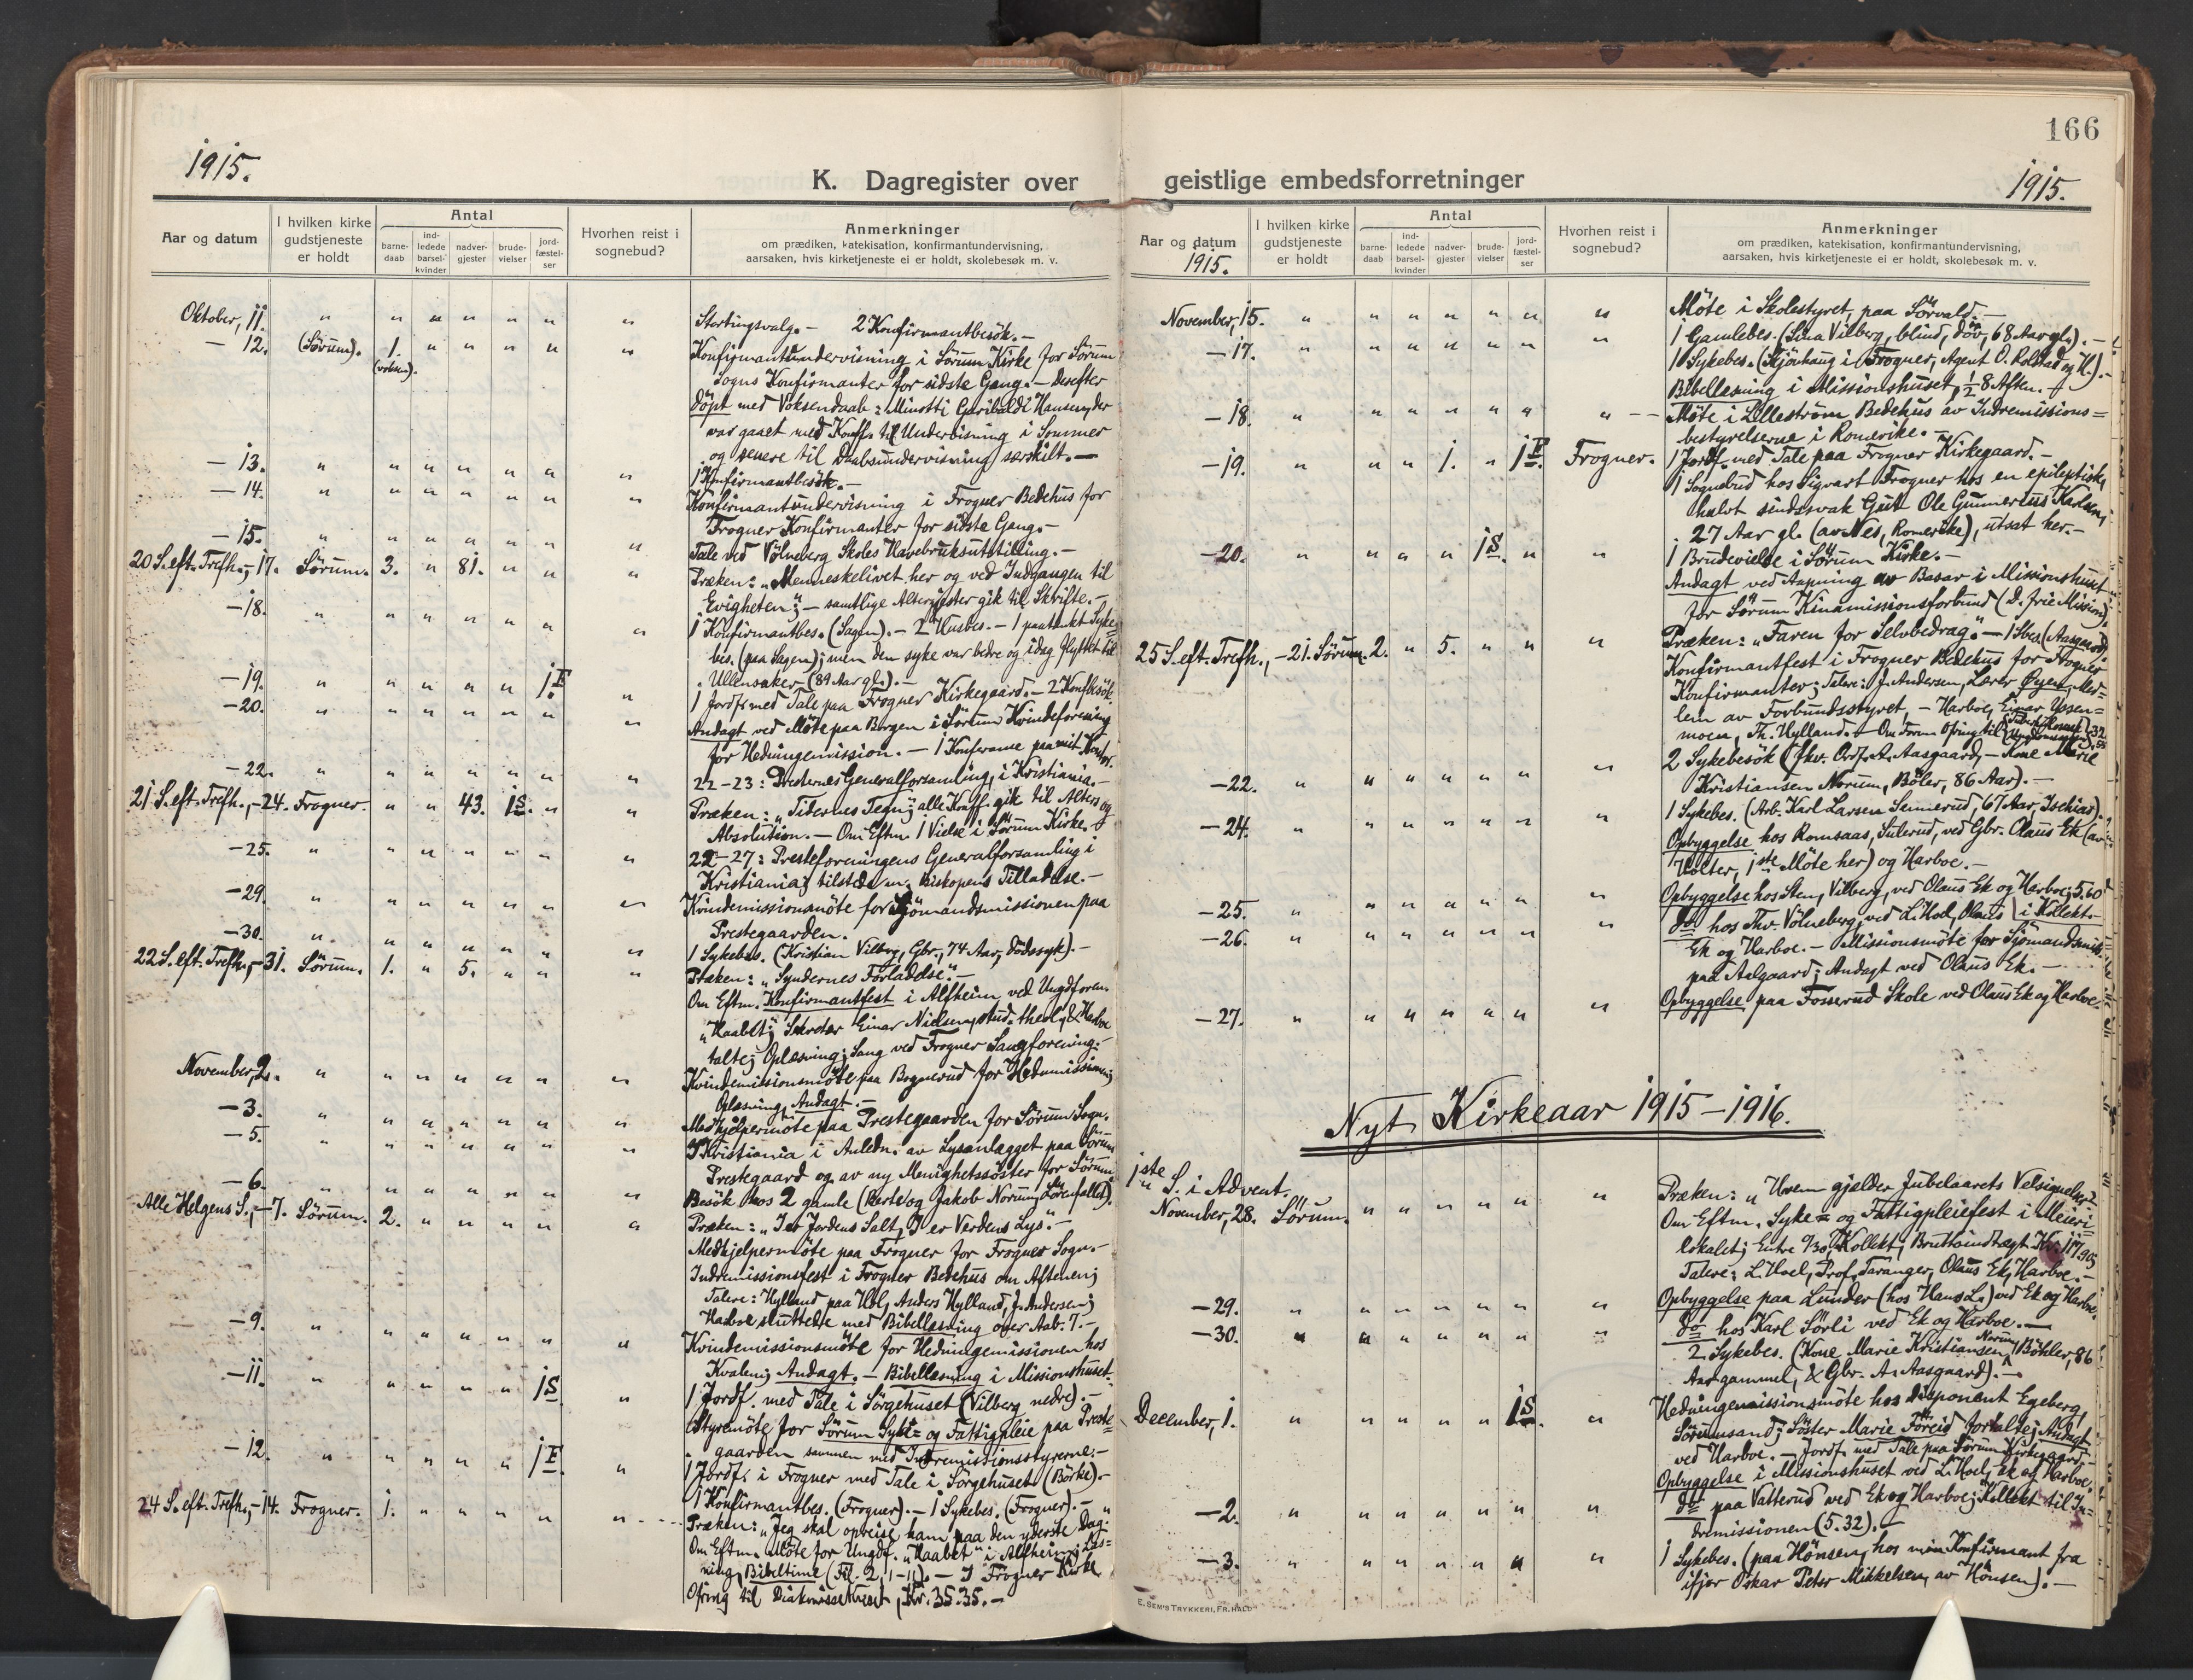 166
1915.
K. Dagregister over
geistlige embedsforretninger
1915.
Aar og datum
I hvilken kirke gudstjeneste er holdt
Antal
barne-daab
ind-ledede barsel-kvinder
nadver-gjester
brude-vielser
jord-fæstel-ser
Hvorhen reist i sognebud?
Anmerkninger
om prædiken, katekisation, konfirmantundervisning,
aarsaken, hvis kirketjeneste ei er holdt, skolebesøk m. v.
Oktober, 11. " " " " " " " Stortingsvalg. — 2 Konfirmantbesök. —
— 12. (Sørum). 1. (voksen). " " " " " Konfirmantundervisning i Sørum Kirke for Sørum
Sogns Konfirmanter for sidste Gang. — Derefter
döpt med Voksendaab: Minotti Garibaldi Hansen, der
var gaaet med Konff. til Undervisning i Sommer
og senere til Daabsundervisning særskilt. —
— 13. " " " " " " " 1 Konfirmantbesök. —
— 14. " " " " " " " Konfirmantundervisning i Frogner Bedehus for
Frogner Konfirmanter for sidste Gang. —
— 15. " " " " " " " Tale ved Völneberg Skoles Havebruksutstilling. —
20 S. eft. Trefh., — 17. Sørum. 3. " 81. " " " Præken: „Menneskelivet her og ved Indgangen til
Evigheten"; — samtlige Altergjester gik til Skrifte. —
— 18. " " " " " " " 1 Konfirmantbes. (Sagen). — 2 Husbes. — 1 paatænkt Syke=
bes. (paa Sagen); men den syke var bedre og idag flyttet til
Ullensaker (89 Aar gl.). —
— 19. " " " " " 1 F. " 1 Jordf. med Tale paa Frogner Kirkegaard. — 2 Konfbesök.
— 20. " " " " " " " Andagt ved Möte paa Borgen i Sörum Kvindeforening
for Hedningemission. — 1 Konferanse paa mit Kontor.
— 22. " " " " " " " 22—23: Presternes Generalforsamling, i Kristiania. —
21 S. eft. Trefh., — 24. Frogner. " " 43. 1 S. " " Præken: „Tidernes Tegn"; alle Konff. gik til Alters og
Absolution. — Om Eftm. 1 Vielse i Sörum Kirke. —
— 25. " " " " " " " 22—27: Presteforeningens Generalforsamling i
Kristiania; tilstede m. Biskopens Tilladelse. —
— 29. " " " " " " " Kvindemissionsmöte for Sjömandsmissionen paa
Prestegaarden.
— 30. " " " " " " " 1 Sykebes. (Kristian Vilberg, Gbr., 74 Aar, dödssyk). —
22 S. eft. Trefh., — 31. Sörum. 1. " 5. " " " Præken: „Syndernes Forladelse". —
Om Eftm. Konfirmantfest i Alfheim ved Ungdforen.
„Haabet"; Sekretær Einar Nielsen, stud. theol., & Harboe
talte; Oplæsning; Sang ved Frogner Sangforening. —
November, 2. " " " " " " " Kvindemissionsmöte paa Bognerud for Hednmissionen;
Oplæsning, Andagt. —
— 3. " " " " " " " Medhjelpermöte paa Prestegaarden for Sörum Sogn.
— 5. " " " " " " " I Kristiania i Anledn. av Lysanlægget paa Sörum
Prestegaard og av ny Menighetssöster for Sörum.
— 6. " " " " " " " Besök hos 2 gamle (Berte og Jakob Norum, Lörenfallet).
Alle Helgens S., — 7. Sörum. 2. " " " " " Præken: „I er Jordens Salt, I er Verdens Lys". —
Medhjelpermöte paa Frogner for Frogner Sogn. —
Indremissionsfest i Frogner Bedehus om Aftenen;
Talere: Hylland paa Hol, Anders Hylland, J. Andersen;
Harboe sluttede med Bibellæsning over Aab. 7. —
— 9. " " " " " " " Kvindemissionsmöte for Hedningemissionen hos
Kvalen; Andagt. — Bibellæsning i Missionshuset.
— 11. " " " " " 1 S. " 1 Jordf. med Tale i Sörgehuset (Vilberg nedre). —
Styremöte for Sörum Syke= og Fattigpleie paa Preste=
gaarden sammen med Indremissionsstyrerne. —
— 12. " " " " " 1 F. " 1 Jordf. i Frogner med Tale i Sörgehuset (Börke). —
1 Konfirmantbes. (Frogner). — 1 Sykebes. (Frogner). —
24 S. eft. Trefh., — 14. Frogner. 1. " " " " " Præken: „Jeg skal opreise ham paa den yderste Dag."
Om Eftm. Möte for Ungdf. „Haabet" i Alfheim; Læs=
ning, Bibeltime (Fil. 2, 1—11). — I Frogner Kirke
Ofring til Diakonissehuset, Kr. 35.35. —
Aar og datum
1915.
I hvilken kirke gudstjeneste er holdt
Antal
barne-daab
ind-ledede barsel-kvinder
nadver-gjester
brude-vielser
jord-fæstel-ser
Hvorhen reist i sognebud?
Anmerkninger
om prædiken, katekisation, konfirmantundervisning,
aarsaken, hvis kirketjeneste ei er holdt, skolebesøk m. v.
November, 15. " " " " " " " Möte i Skolestyret, paa Sörvald. —
— 17. " " " " " " " 1 Gamlebes. (Lina Vilberg, blind, döv, 68 Aar gl.). —
1 Sykebes. (Skjönhaug i Frogner, Agent O. Rolstad og H.). —
Bibellæsning i Missionshuset, ½ 8 Aften. —
— 18. " " " " " " " Möte i Lilleström Bedehus av Indremissions=
bestyrelserne i Romerike. —
— 19. " " " 1. " 1 F. Frogner. 1 Jordf. med Tale paa Frogner Kirkegaard. —
1 Sognebud hos Sigvart Frogner hos en epileptisk,
halvt sindssvak Gut Ole Gunnerius Karlsen,
27 Aar gl. (av Nes, Romerike), utsat her. —
— 20. " " " " 1 S. " " 1 Brudevielse i Sörum Kirke. —
Andagt ved Aapning av Basar i Missionshuset
for Sörum Kinamissionsforbund (D. frie Mission).
25 S. eft. Trefh., — 21. Sörum. 2. " 5. " " " Præken: „Faren for Selvbedrag". — 1 Sbes. (Aasgaard).
Konfirmantfest i Frogner Bedehus for Frogner
Konfirmanter; Talere: J. Andersen, Lærer Øyen, Med=
lem av Forbundsstyret, — Harboe, Einar Yssen=
moen, Th. Hylland. — Om Form. Ofring til
— 22. " " " " " " " 2 Sykebesök (fhv. Ordf. A. Aasgaard, — Kone Marie
Kristiansen Norum, Böler, 86 Aar). —
— 24. " " " " " " " 1 Sykebes. (Arb. Karl Larsen Sennerud, 67 Aar, Ischias).
Opbyggelse hos Romsaas, Sulerud, ved Gbr. Olaus Ek (av
Holter, 1ste Möte her) og Harboe. —
— 25. " " " " " " " Opbyggelse hos Sten, Vilberg, ved Olaus Ek og Harboe; 5.60
i Kollekt. —
— 26. " " " " " " " do hos Thv. Völneberg ved L. Hoel, Olaus
Ek og Harboe. — Missionsmöte for Sjömandsmis.
paa Aalgaard; Andagt ved Olaus Ek. —
— 27. " " " " " " " Opbyggelse paa Fosserud Skole ved Olaus Ek og Harboe.
Nyt Kirkeaar 1915—1916.
1ste S. i Advent.
November, 28. Sörum. " " " " " " Præken: „Hvem gjælder Jubelaarets Velsignelse?"
Om Eftm. Syke= og Fattigpleiefest i Meieri=
lokalet; Entre 0/30, Kollekt; Bruttoindtægt Kr. 117.90;
Talere: L. Hoel, Prof. Taranger, Olaus Ek, Harboe. —
— 29. " " " " " " " Opbyggelse paa Lunder (hos Hans L.) ved Ek og Harboe.
— 30. " " " " " " " do hos Karl Sörli ved Ek og Harboe. —
2 Sykebes. (Kone Marie Kristiansen Norum, Böhler, 86
Aar gammel, & Gbr. A. Aasgaard). —
December, 1. " " " " " 1 S. " Hedningemissionsmöte hos Disponent Egeberg,
Sörumsand; Söster Marie Föreid fortalte; Andagt
ved Harboe. — Jordf. med Tale paa Sörum Kirkegaard. —
Opbyggelse i Missionshuset ved L. Hoel, Ek og Harboe.
— 2. " " " " " " " do paa Valterud ved Ek og Harboe; Kollekt til In=
dremissionen (5.32). —
— 3. " " " " " " " 1 Sykebes. (paa Hönsen, hos min Konfirmant fra
ifjor Oskar Peter Mikkelsen, av Hönsen). —
E. SEM'S TRYKKERI, FR.HALD